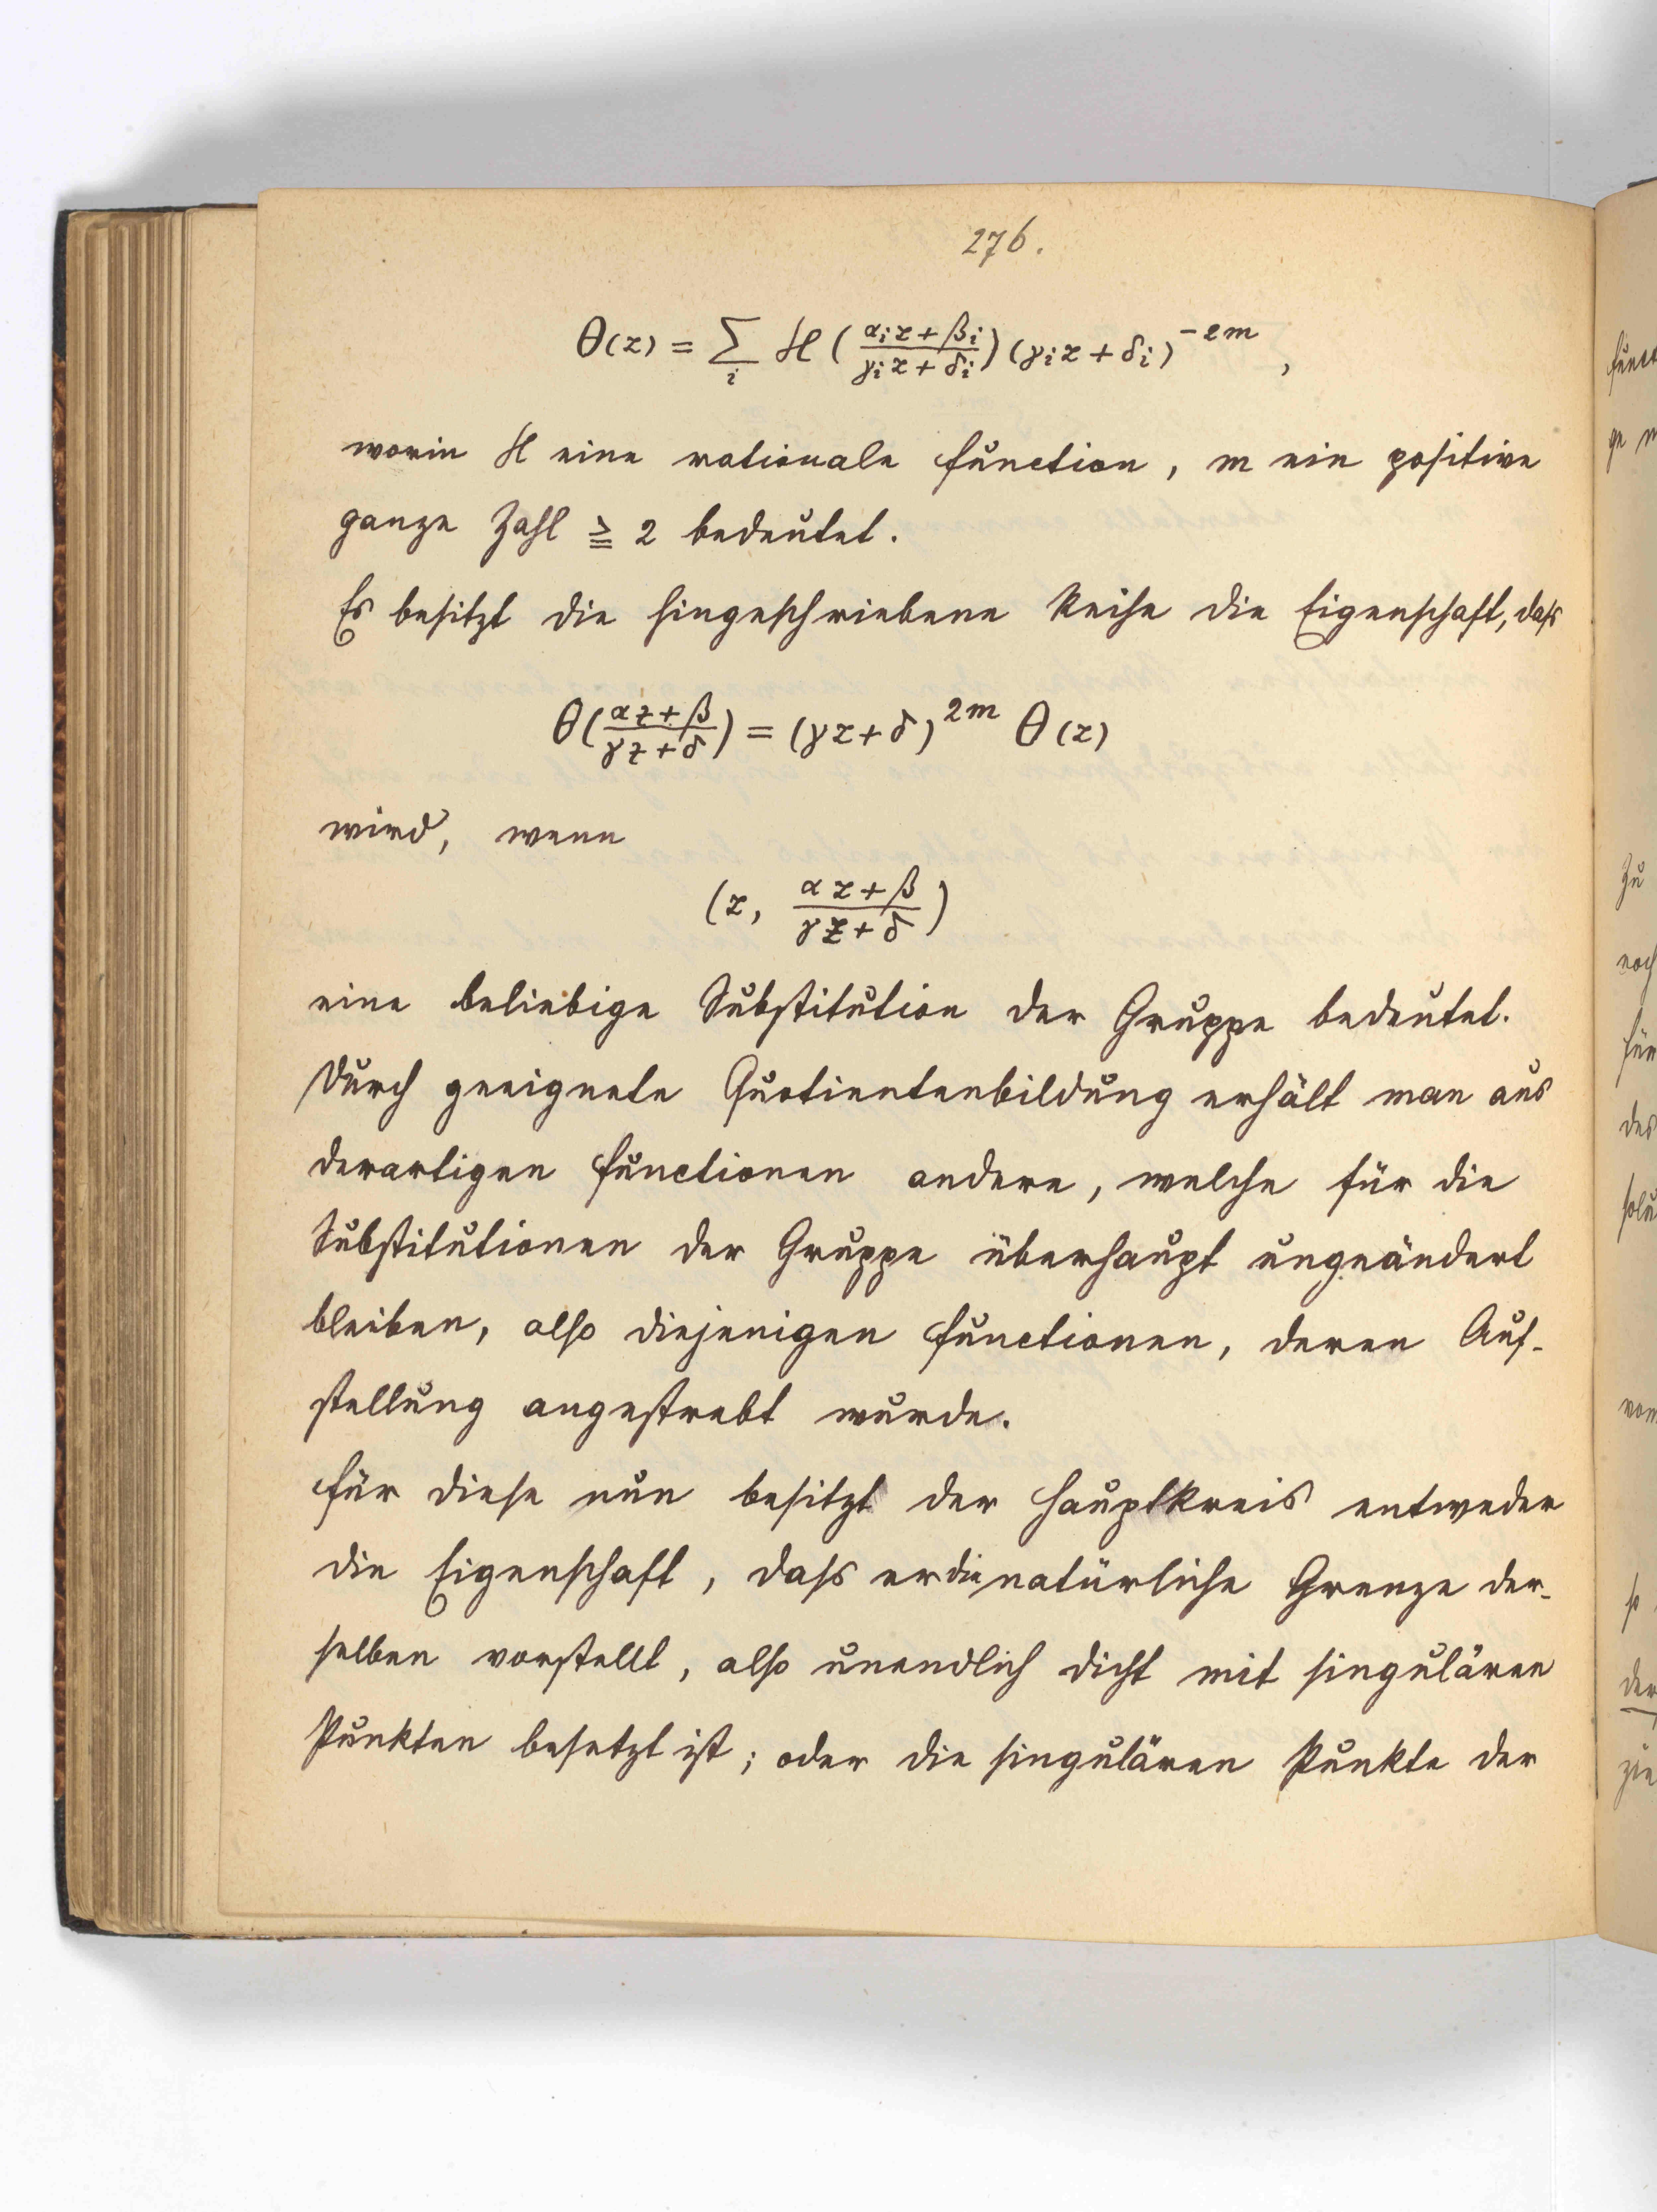 276.
Θ(z) = Σ_i H ( (α_i z + β_i) / (γ_i z + δ_i) ) (γ_i z + δ_i)^{-2m} ,
worin H eine rationale Function, m ein positive
ganze Zahl ≧ 2 bedeutet.
Es besitzt die hingeschriebene Reihe die Eigenschaft, dass
Θ( (αz + β) / (γz + δ) ) = (γz + δ)^{2m} Θ(z)
wird, wenn
(z, (αz + β) / (γz + δ) )
eine beliebige Substitution der Gruppe bedeutet.
Durch geeignete Quotientenbildung erhält man aus
derartigen Functionen andere, welche für die
Substitutionen der Gruppe überhaupt ungeändert
bleiben, also diejenigen Functionen, deren Auf-
stellung angestrebt wurde.
Für diese nun besitzt der Hauptkreis entweder
die Eigenschaft, dass er die natürliche Grenze der-
selben vorstellt, also unendlich dicht mit singulären
Punkten besetzt ist; oder die singulären Punkte der